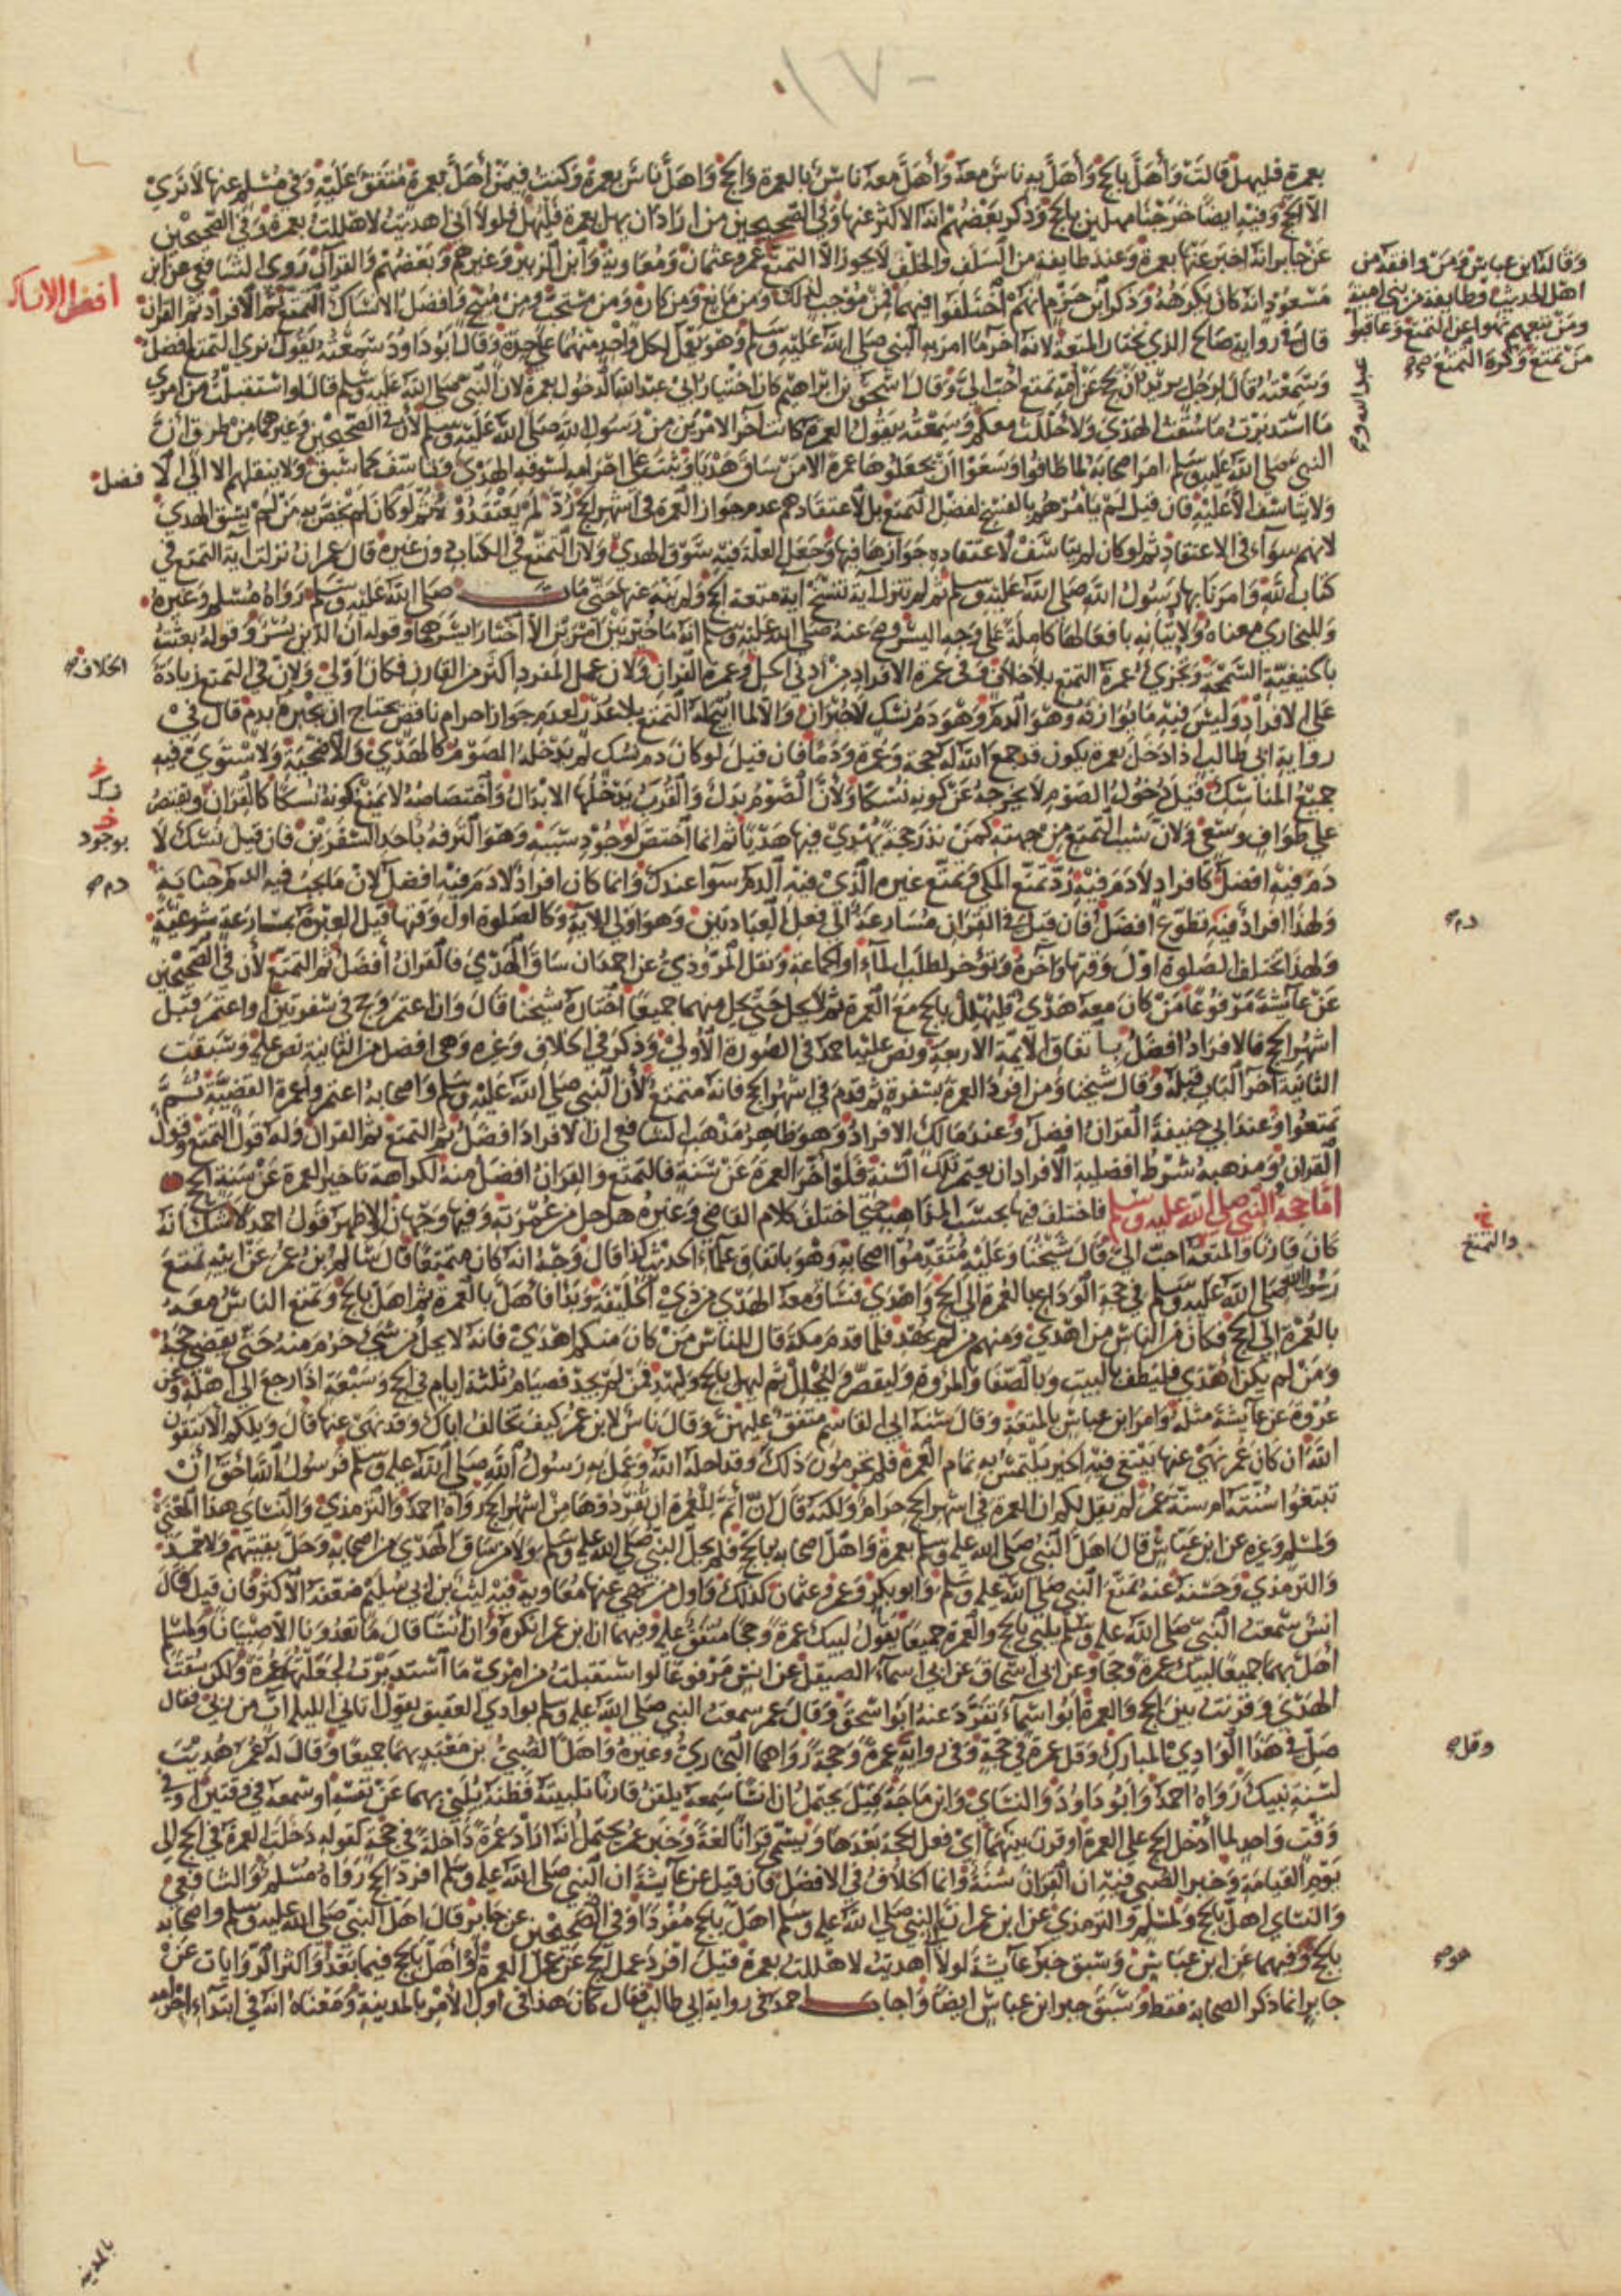 ١٧٠
بعمرة فليهل قالت وأهل بالحج وأهل به ناس معه وأهل معه ناس بالعمرة والحج وأهل ناس بعمرة وكنت فيمن أهل بعمرة متفق عليه وفي مسلم عنها لا نرى
الا الحج وفيه ايضا خرجنا مهلين بالحج وذكر بعضهم انه الاكثر عنها وفي الصحيحين من اراد ان يهل بعمرة فليهل فلولا اني اهديت لاهللت بعمرة وفي الصحيحين
عن جابر انه اخبر عنها بعمرة وعند طايفة من السلف والخلف لا يجوز الا التمتع عمر وعثمان ومعاوية وابن الزبير وغيرهم وبعضهم والقران روى الشافعي عن ابن
مسعود انه كان يكرهه وذكر ابن حزم انهم اختلفوا فيهما فمن موجب لذلك ومن مانع ومن كاره ومن مستحب ومن مبيح وافضل الانساك التمتع ثم الافراد ثم القران
قال في رواية صالح الذي يختار المتعة لانه آخر ما امر به النبي صلى الله عليه وسلم وهو يعمل لكل واحد منهما على حدة وقال ابو داود سمعته يقول نرى التمتع افضل
وسمعته قال لرجل يريد ان يحج عن امه تمتع احب الي وقال اسحق بن ابراهيم كان اختيار ابي عبد الله الدخول بعمرة لان النبي صلى الله عليه وسلم قال لو استقبلت من امري
ما استدبرت ما سقت الهدي ولاحللت معكم وسمعته يقول العمرة كانت آخر الامرين من رسول الله صلى الله عليه وسلم لأن في الصحيحين وغيرهما من طرق أن
النبي صلى الله عليه وسلم امر اصحابه لما طافوا وسعوا ان يجعلوها عمرة الا من ساق هديا وثبت على احرامه لسوقه الهدي وتاسف كما سبق ولا ينقلهم الا الى الا فضل
ولا يتاسف الا عليه فان قيل لم يأمرهم بالفسخ لفضل التمتع بل لاعتقادهم عدم جواز العمرة في اشهر الحج رد لم يعتقدوه ثم لو كان لم يخص به من لم يسق الهدي
لانهم سواء في الاعتقاد ثم لو كان لم يتاسف لاعتقاده جوازها فيها وجعل العلة فيه سوق الهدي ولان التمتع في الكتاب دون غيره قال عمران نزلت آية التمتع في
كتاب الله وامرنا بها رسول الله صلى الله عليه وسلم ثم لم تنزل آية تنسخ آية متعة الحج ولم ينه عنها حتى مات صلى الله عليه وسلم رواه مسلم وغيره
وللبخاري معناه ولاتيانه بافعالها كاملة على وجه اليسر وصح عنه صلى الله عليه وسلم انه ما خير بين امرين الا اختار ايسرهما وقوله ان الدين يسر وقوله بعثت
بالحنيفية السمحة وتجزئ عمرة التمتع بلا خلاف وفي عمرة الافراد من ادنى الحل وعمرة القران ولان عمل المفرد اكثر من القارن فكان اولى ولان في التمتع زيادة
على الافراد وليس فيه ما يوازنه وهو الدم وهو دم نسك لا جبران والا لما ابيح له التمتع بلا عذر لعدم جواز احرام ناقص يحتاج ان يجبره بدم قال في
رواية ابي طالب اذا دخل بعمرة يكون قد جمع الله له حجة وعمرة ودما فان قيل لو كان دم نسك لم يدخله الصوم كالهدي والاضحية ولاستوى فيه
جميع المناسك قيل دخول الصوم لا يخرجه عن كونه نسكا ولأن الصوم بدل والقرب يدخلها الابدال واختصاصه لا يمنع كونه نسكا كالقران ويقتصر
على طواف وسعي ولان سبب التمتع من جهته كمن نذر حجة يهدي فيها هديا ثم انما اختص لوجود سببه وهو الترفه باحد السفرين فان قيل نسك لا
دم فيه افضل كافراد لا دم فيه رد تمتع المكي وتمتع غيره الذي فيه الدم سوا عندك وانما كان افراد لا دم فيه افضل لان ما يجب فيه الدم جناية
ولهذا افراد فيه تطوع افضل فان قيل في القران مسارعة الى فعل العبادتين وهو اولى للاية وكالصلوة اول وقتها قيل العبرة بمسارعة شرعية
ولهذا تختلف الصلوة اول وقتها وآخره وتؤخر لطلب الماء او الجماعة ونقل المروذي عن احمد ان ساق الهدي فالقران أفضل ثم التمتع لأن في الصحيحين
عن عائشة مرفوعا من كان معه هدي فليهلل بالحج مع العمرة ثم لا يحل حتى يحل منهما جميعا اختاره شيخنا قال وان اعتمر وحج في سفرتين او اعتمر قبل
اشهر الحج فالافراد افضل باتفاق الايمة الاربعة ونص عليه احمد في الصورة الأولى وذكره في الخلاف وغيره وهي افضل من الثانية نص عليه وسبقت
الثانية آخر الباب قبله وقال شيخنا ومن افرد العمرة بسفرة ثم قدم في اشهر الحج فانه متمتع لأن النبي صلى الله عليه وسلم واصحابه اعتمروا عمرة القضية ثم
تمتعوا وعند ابي حنيفة القران افضل وعند مالك الافراد وهو ظاهر مذهب الشافعي ان الافراد افضل ثم التمتع ثم القران وله قول التمتع وقول
القران ومذهبه شرط افضلية الافراد ان يعتمر تلك السنة فلو أخر العمرة عن سنته فالتمتع والقران افضل منه لكراهة تاخير العمرة عن سنة الحج
اما حجة النبي صلى الله عليه وسلم فاختلف فيها بحسب المذاهب حتى اختلف كلام القاضي وغيره هل حل من عمرته وفيها وجهان الاظهر قول احمد لا شك انه
كان قارنا والمتعة احب الي قال شيخنا وعليه متقدموا اصحابه وهو باتفاق علماء الحديث كذا قال وجه انه كان متمتعا قال سالم بن عمر عن ابيه تمتع
رسول الله صلى الله عليه وسلم في حجة الوداع بالعمرة الى الحج واهدى فساق معه الهدي من ذي الحليفة وبدأ فأهل بالعمرة ثم اهل بالحج وتمتع الناس معه
بالعمرة الى الحج فكان من الناس من اهدى ومنهم من لم يهد فلما قدم مكة قال للناس من كان منكم اهدى فانه لا يحل من شيء حرم منه حتى يقضي حجه
ومن لم يكن أهدى فليطف بالبيت وبالصفا والمروة وليقصر وليحلل ثم ليهل بالحج وليهد فمن لم يجد فصيام ثلثة ايام في الحج وسبعة اذا رجع الى اهله وعن
عروة عن عايشة مثله وامر ابن عباس بالمتعة وقال سنة ابي القاسم متفق عليهن وقال ناس لابن عمر كيف تخالف اباك وقد نهى عنها قال ويلكم ألا تتقون
الله ان كان عمر نهى عنها يبتغي فيه الخير يلتمس به تمام العمرة فلم تحرمون ذلك وقد احله الله وعمل به رسول الله صلى الله عليه وسلم فرسول الله احق أن
تبتغوا سنته ام سنة عمر لم يقل لكم ان العمرة في اشهر الحج حرام ولكنه قال ان أتم للعمرة ان تفردوها من اشهر الحج رواه احمد والترمذي والنساي هذا المعنى
ولمسلم وغيره عن ابن عباس قال اهل النبي صلى الله عليه وسلم بعمرة واهل اصحابه بالحج فلم يحل النبي صلى الله عليه وسلم ولا من ساق الهدي من اصحابه وحل بقيتهم ولاحمد
والترمذي وحسنه عنه تمتع النبي صلى الله عليه وسلم وابو بكر وعمر وعثمان كذلك واول من نهى عنها معاوية فيه ليث بن ابي سليم ضعفه الأكثر فان قيل قال
انس سمعت النبي صلى الله عليه وسلم يلبي بالحج والعمرة جميعا يقول لبيك عمرة وحجا متفق عليه وفيهما ان ابن عمر انكره وان انسا قال ما تعدوننا الا صبيانا ولمسلم
أهل بهما جميعا لبيك عمرة وحجا وعن ابي اسحاق عن ابي اسماء الصيقل عن انس مرفوعا لو استقبلت من امري ما استدبرت لجعلتها عمرة ولكن سقت
الهدي وقرنت بين الحج والعمرة ابو اسماء تفرد عنه ابو اسحق وقال عمر سمعت النبي صلى الله عليه وسلم بوادي العقيق يقول اتاني الليلة آت من ربي فقال
صل في هذا الوادي المبارك وقل عمرة في حجة وفي رواية عمرة وحجة رواهما البخاري وغيره واهل الصبي بن معبد بهما جميعا وقال له عمر هديت
لسنة نبيك رواه احمد وابو داود والنساي وابن ماجة قيل يحتمل ان انسا سمعه يلقن قارنا تلبيته فظنه يلبي بهما عن نفسه او سمعه في وقتين او في
وقت واحد لما أدخل الحج على العمرة او قرن بينهما أي فعل الحجة بعدها ويسمى قرانا لغة وخبر عمر يحتمل انه اراد عمرة داخلة في حجة كقوله دخلت العمرة في الحج الى
يوم القيامة وخبر الصبي فيه ان القران سنة وانما الخلاف في الافضل فان قيل عن عايشة ان النبي صلى الله عليه وسلم افرد الحج رواه مسلم والشافعي
والنساي اهل بالحج ولمسلم والترمذي عن ابن عمر ان النبي صلى الله عليه وسلم اهل بالحج مفردا وفي الصحيحين عن جابر قال اهل النبي صلى الله عليه وسلم واصحابه
بالحج وفيهما عن ابن عباس وسبق خبر عايشة لولا أهديت لاهللت بعمرة قيل افرد عمل الحج عن عمل العمرة أو أهل بالحج فيما بعد واكثر الروايات عن
جابر انما ذكر الصحابة فقط وسبق خبر ابن عباس ايضا واجاب احمد في رواية ابي طالب فقال كان هذا في اول الأمر بالمدينة ومعناه انه في ابتداء احرامه
وقاله ابن عباس ومن وافقه من
اهل الحديث وطايفة من بني امية
ومن تبعهم نهوا عن التمتع وعاقبوا
من تمتع وكره التمتع صح
افضل الانساك
الخلاف
بوجود
دم صح
دم صح
خ
والتمتع
وقل صح
هو صح
بالمدينة